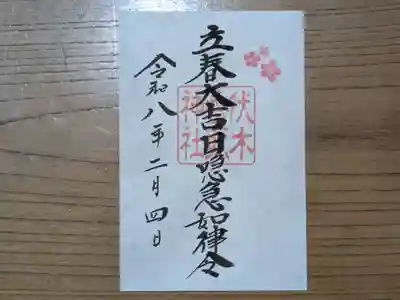 立春大吉日隠急如律令
令和八年二月四日
伏木
神社